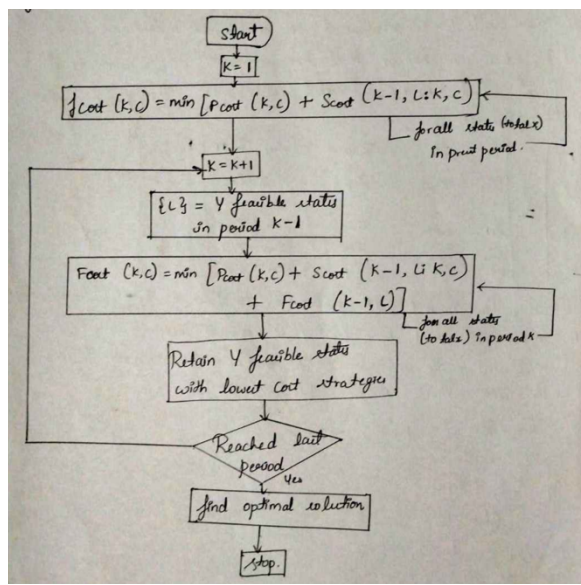 start
K = 1
fcost (K,C) = min [Pcost (K,C) + Scost (K-1, L : K, C)
for all states (total x)
in
period.
K = K+1
{L} = Y feasible states
in period K-1
Fcost (K,C) = min [Pcost (K,C) + Scost (K-1, L : K, C)
+ Fcost (K-1, L)]
for all states
(total x) in period K
Retain Y feasible states
with lowest cost strategies
Reached last
period
Yes
find optimal solution
stop.